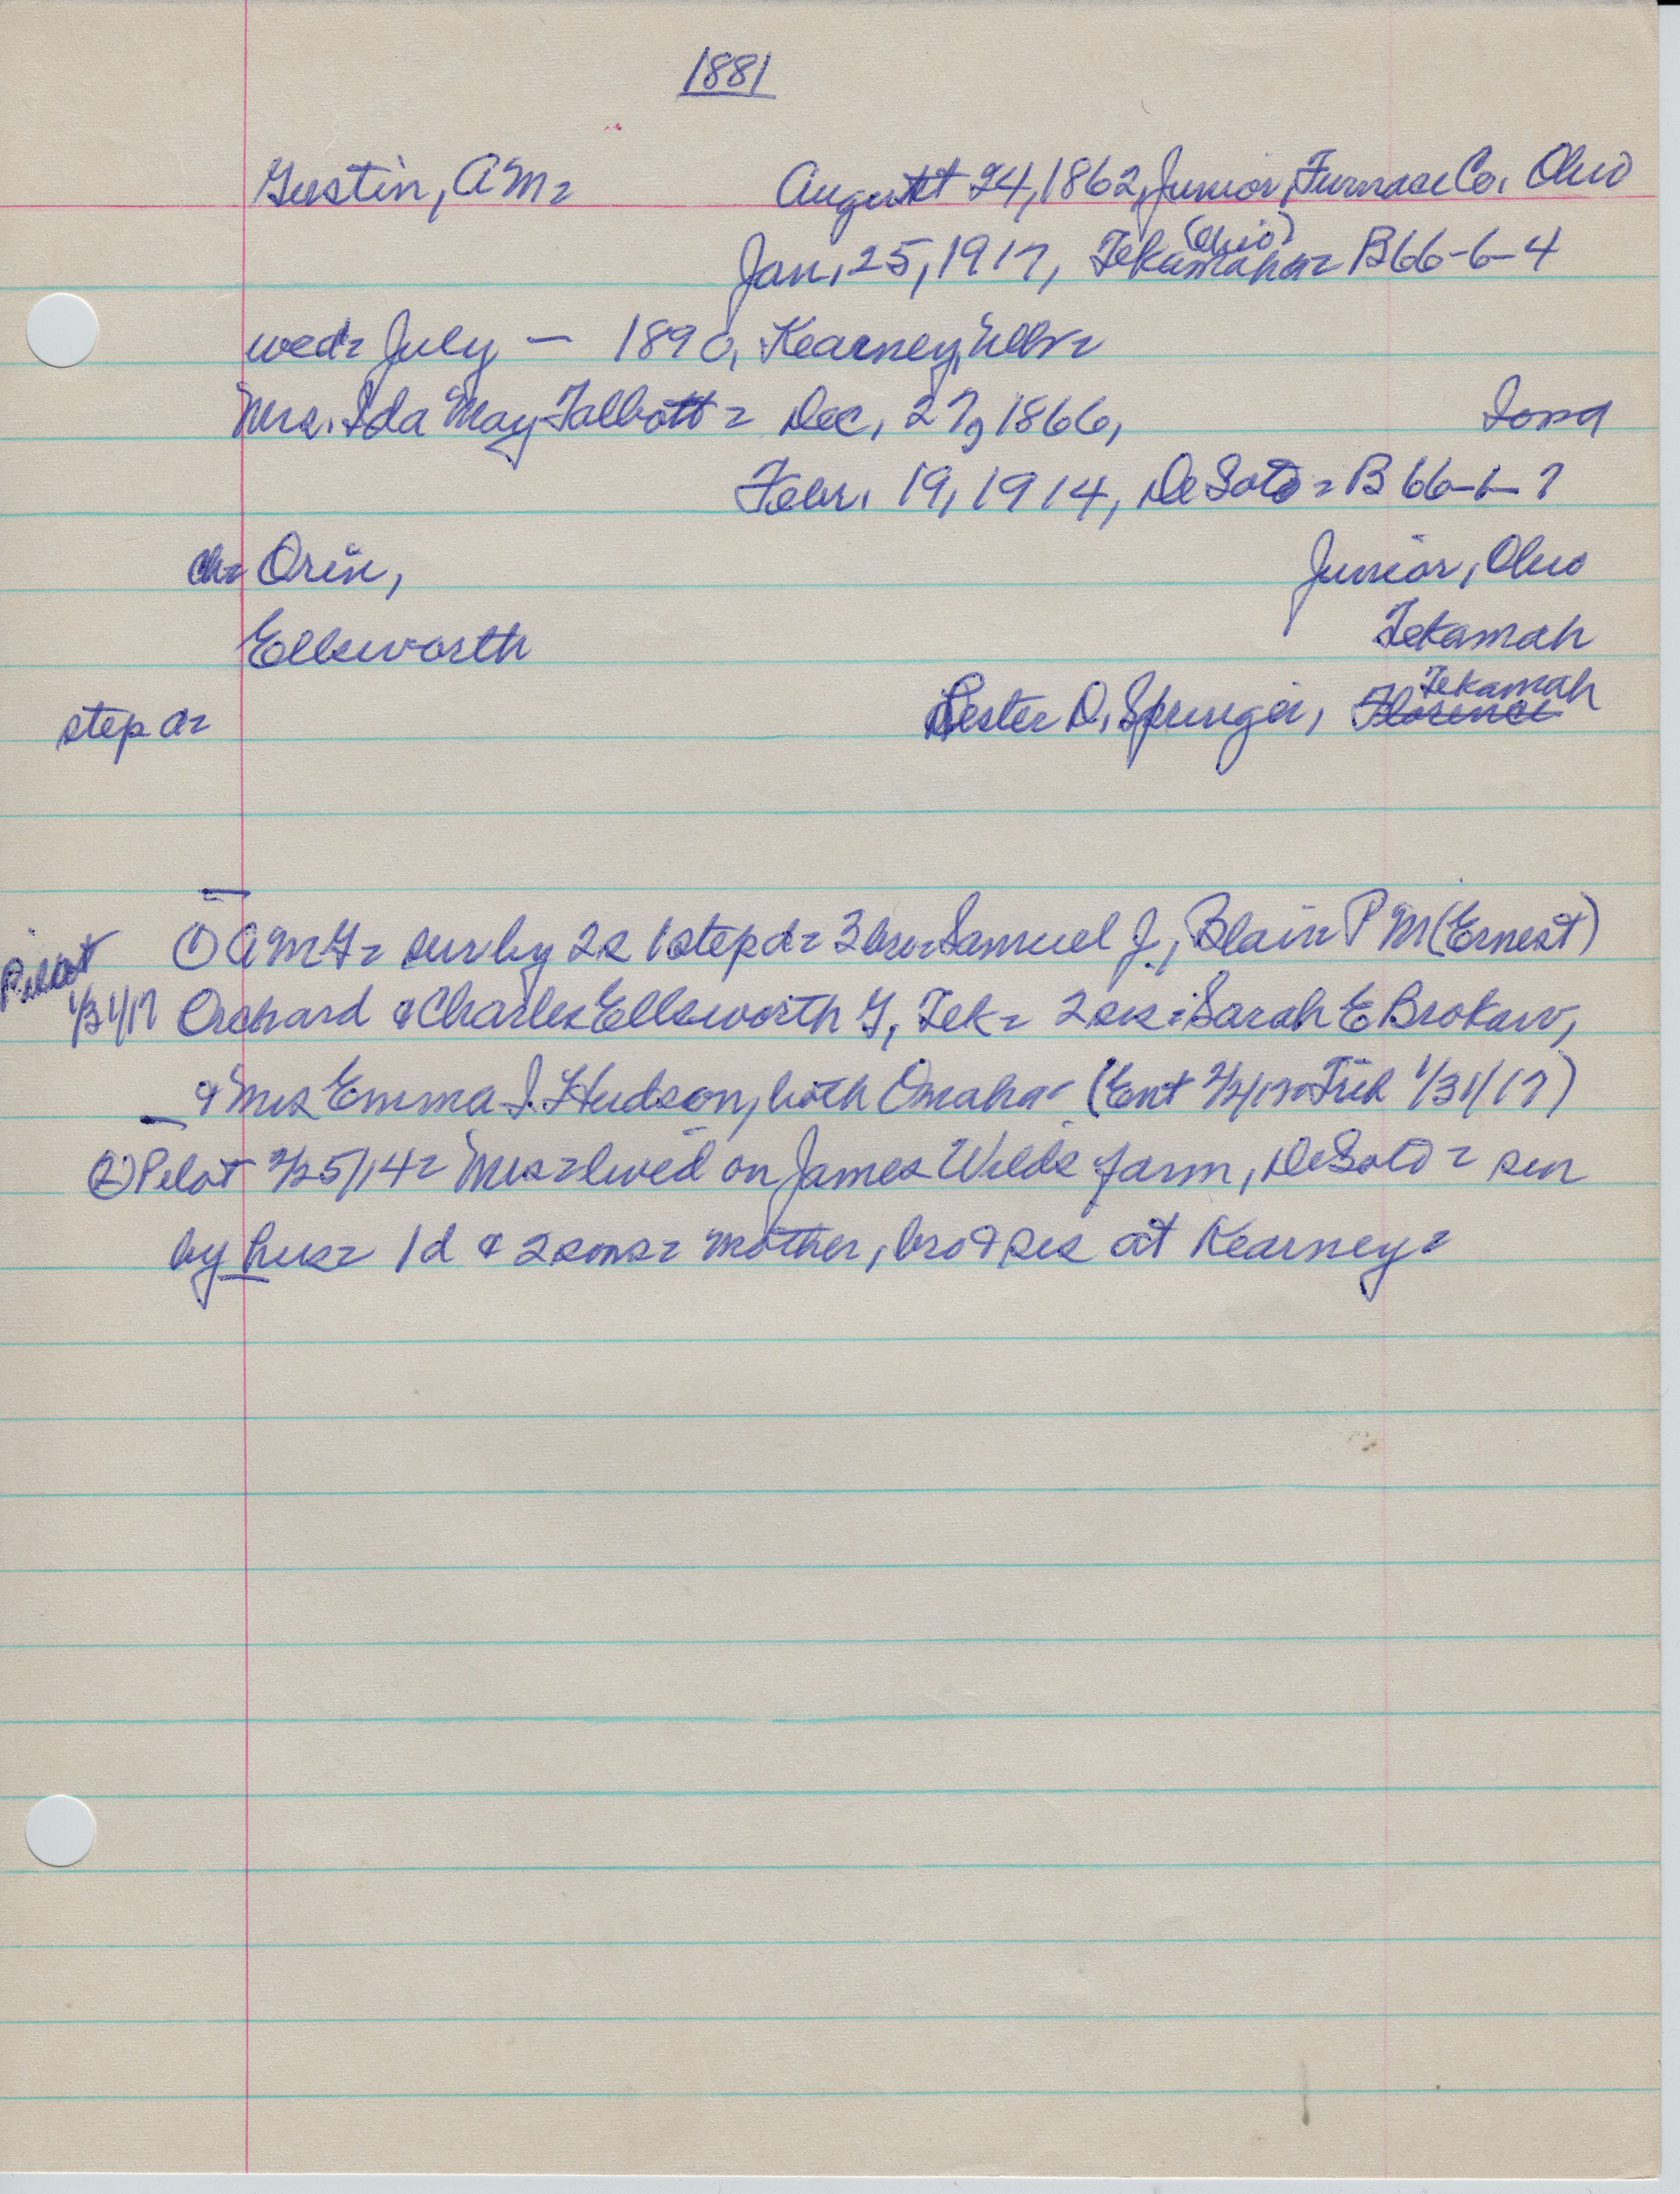 1881
Gustin, AM= August 24, 1862, Junior, Furnace Co. Ohio
(Ohio)
Jan, 25, 1917, Tekamah= B66-6-4
wed= July — 1890, Kearney, Nebr=
Mrs. Ida May Talbott= Dec, 27, 1866, Iowa
Febr. 19, 1914, DeSoto= B 66-6-7
ch= Orin, Junior, Ohio
Ellsworth Tekamah
Tekamah
step d= Lester D. Springer, Florence
① AMG= sur by 2s 1 step d= 3 bro=Samuel J., Blair P M (Ernest)
Pilot
1/31/17 Orchard & Charles Ellsworth G, Tek= 2 sis: Sarah E Brokaw,
& Mrs Emma J. Hudson, both Omaha= (Ent 2/2/17= Trib 1/31/17)
② Pilot 2/25/14= Mrs= lived on James Wilds farm, DeSoto= sur
by hus= 1d & 2 sons= mother, bro & sis at Kearney=